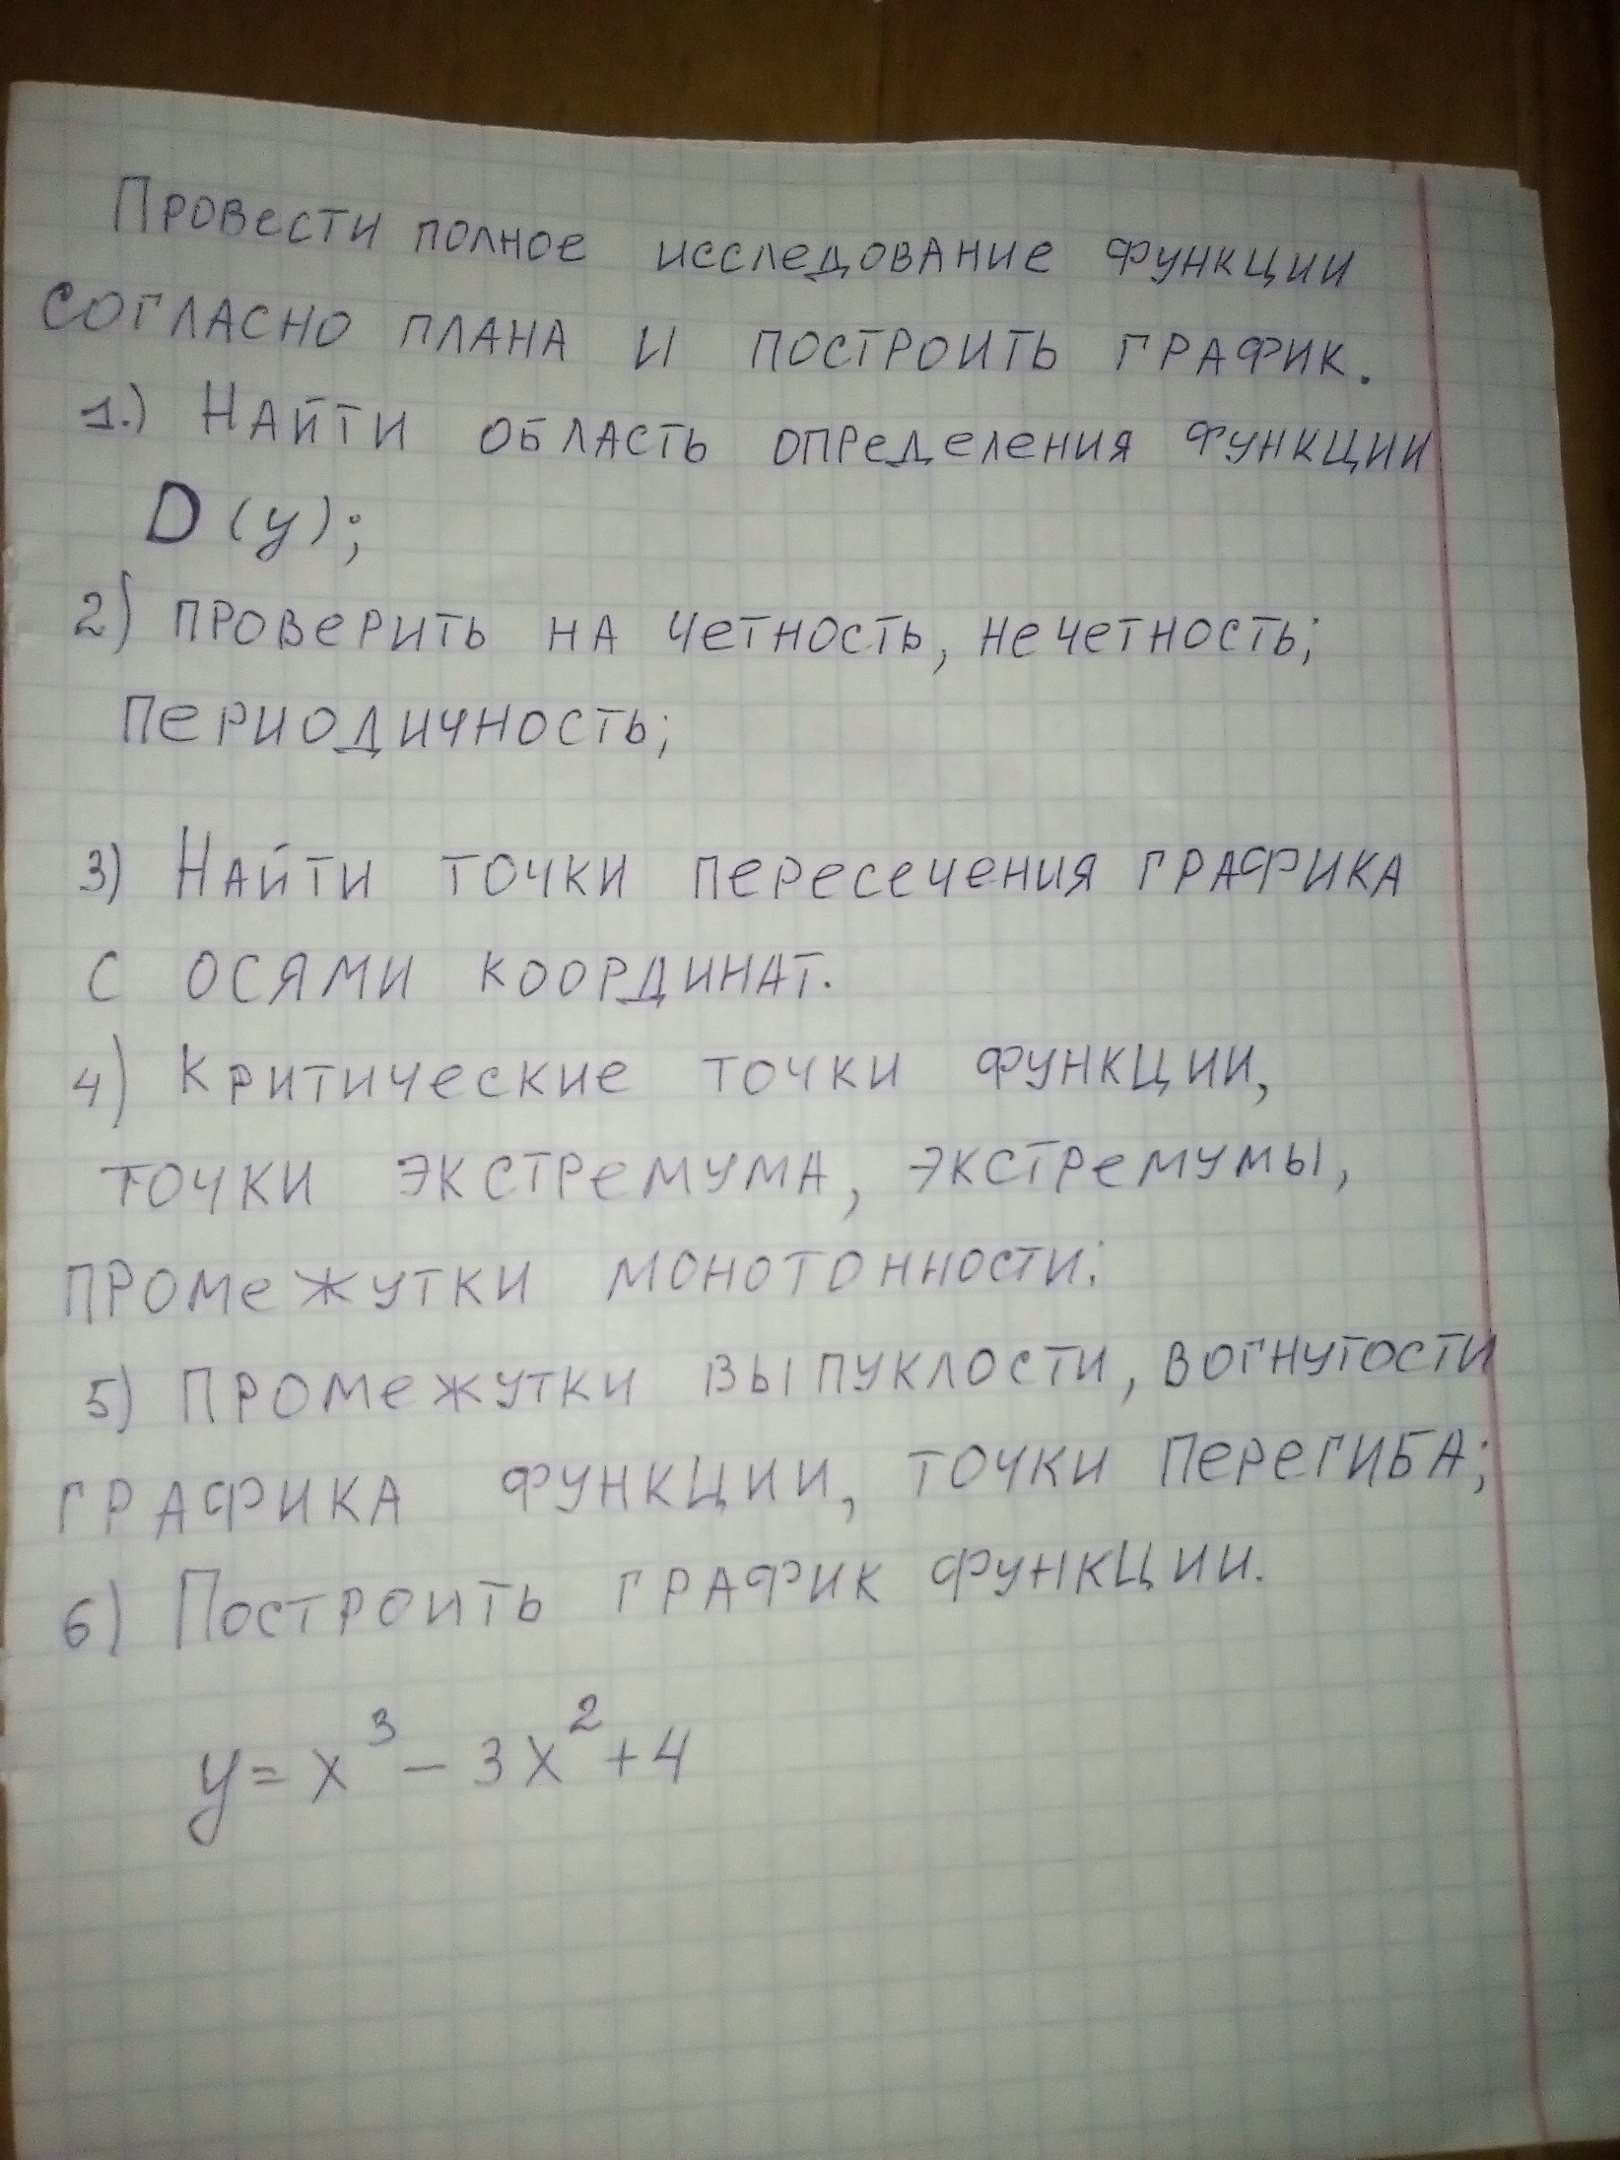 Провести полное исследование функции
согласно плана и построить график.
1.) Найти область определения функции
D(y);
2) проверить на четность, нечетность;
периодичность;
3) Найти точки пересечения графика
с осями координат.
4) Критические точки функции,
точки экстремума, экстремумы,
промежутки монотонности:
5) Промежутки выпуклости, вогнутости
графика функции, точки перегиба;
6) Построить график функции.
y = x³ - 3x² + 4